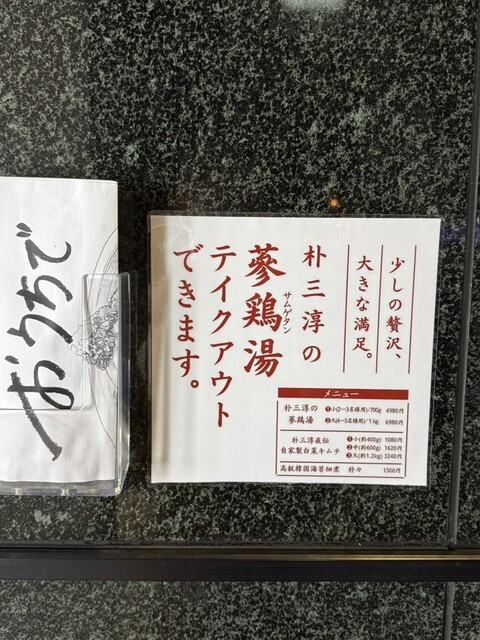 少しの贅沢、
大きな満足。
朴三淳の
蔘鶏湯
サムゲタン
テイクアウト
できます。
メニュー
朴三淳の
蔘鶏湯
❶小(2〜3名様用)/700g 4980円
❷大(4〜5名様用)/1kg 6980円
朴三淳直伝
自家製白菜キムチ
❶小(約400g) 1080円
❷中(約600g) 1620円
❸大(約1.2kg) 3240円
高級韓国海苔佃煮 朴々 1500円
おうちで